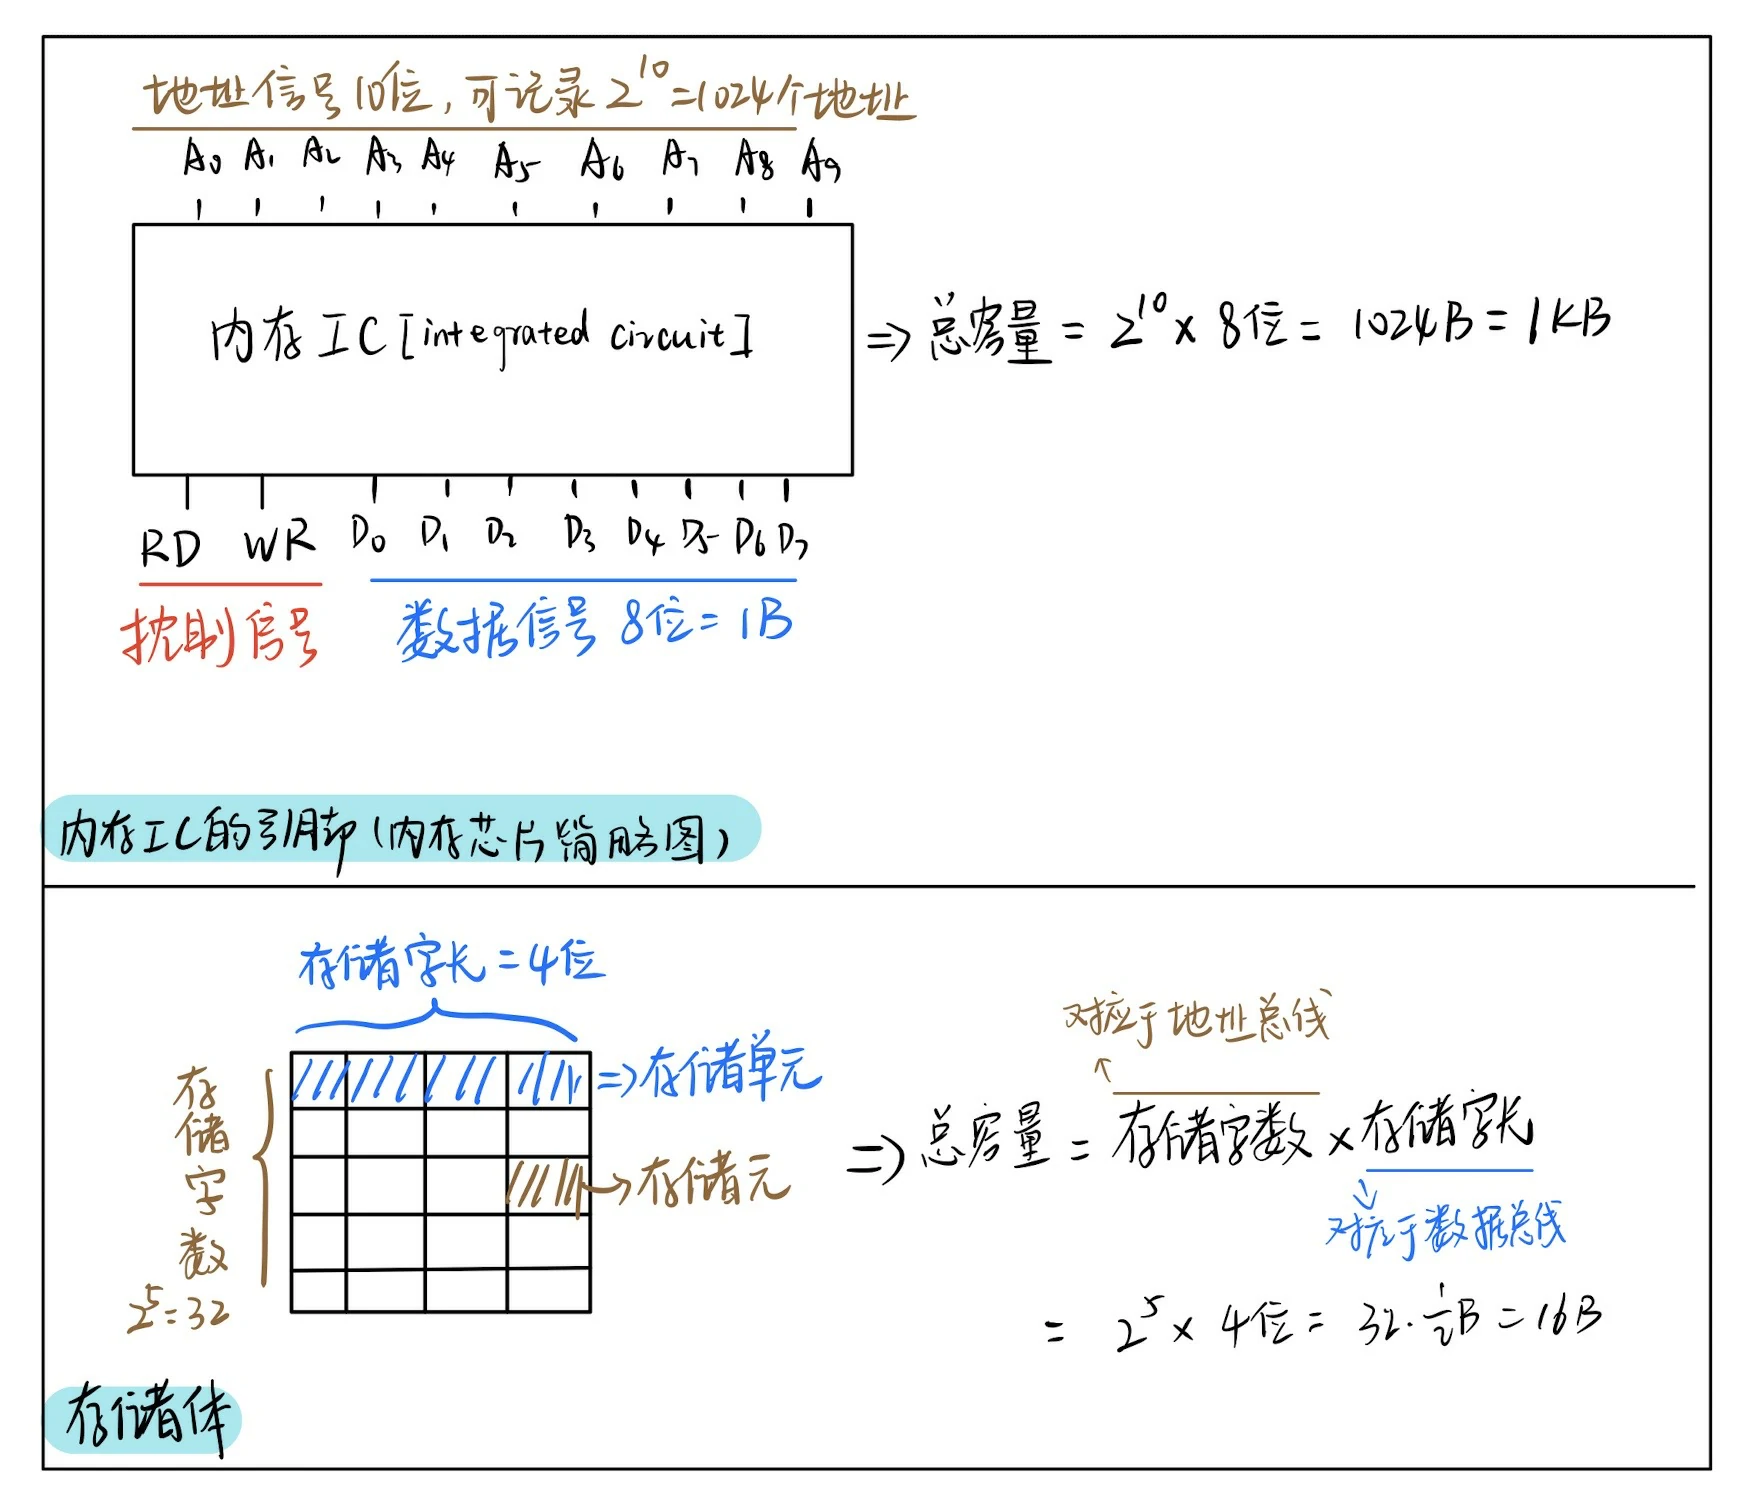 地址信号10位,可记录2^10=1024个地址
A0 A1 A2 A3 A4 A5 A6 A7 A8 A9
内存IC[integrated circuit]
⇒总容量 = 2^10 × 8位 = 1024B = 1KB
RD WR D0 D1 D2 D3 D4 D5 D6 D7
控制信号
数据信号 8位=1B
内存IC的引脚(内存芯片简略图)
存储字长=4位
⇒存储单元
→存储元
存储字数
2^5=32
对应于地址总线
⇒总容量 = 存储字数×存储字长
对应于数据总线
= 2^5 × 4位 = 32·1/2B = 16B
存储体